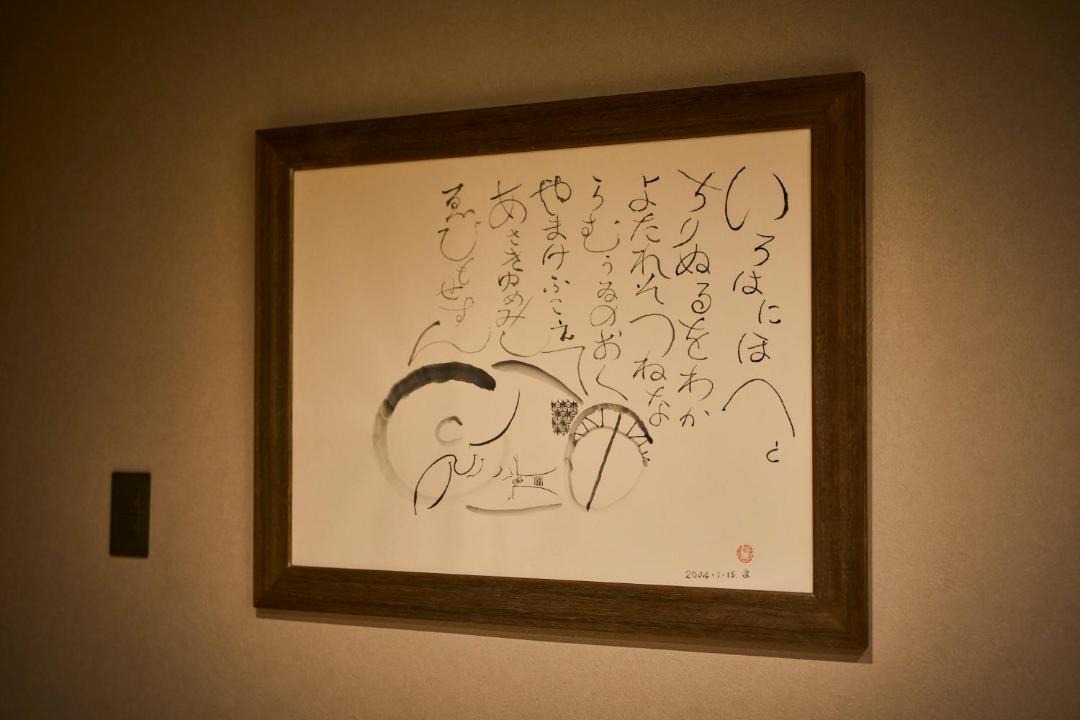 いろはにほへと
ちりぬるをわか
よたれそつねな
らむうゐのおく
やまけふこえて
あさきゆめみし
ゑひもせすん
2004・1・15. ま